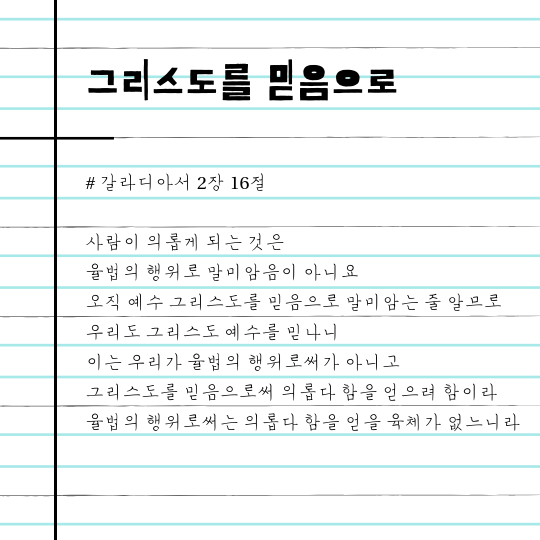 그리스도를 믿음으로
# 갈라디아서 2장 16절
사람이 의롭게 되는 것은
율법의 행위로 말미암음이 아니요
오직 예수 그리스도를 믿음으로 말미암는 줄 알므로
우리도 그리스도 예수를 믿나니
이는 우리가 율법의 행위로써가 아니고
그리스도를 믿음으로써 의롭다 함을 얻으려 함이라
율법의 행위로써는 의롭다 함을 얻을 육체가 없느니라